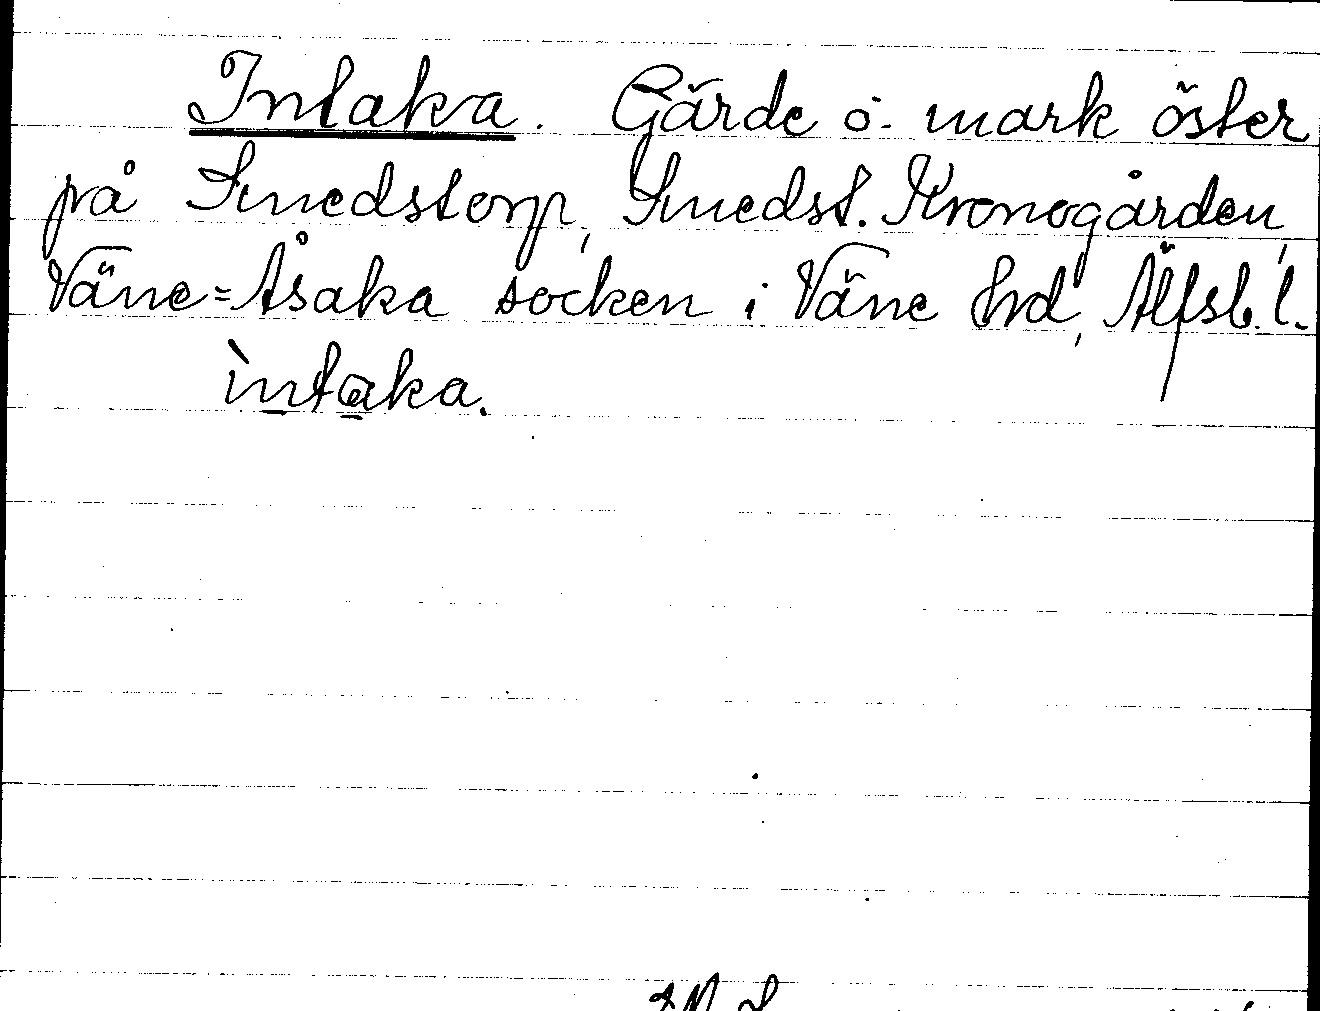 Intaka. Gärde o. mark öster
på Smedstorp, Smedst. Kronogården,
Väne=Åsaka socken i Väne hrd, Älfsb. l.
ìntaka.